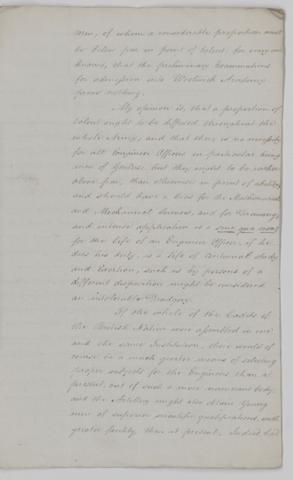 men, of whom a considerable proportion must
be below par in point of talent; for every one
knows, that the preliminary Examinations
for admission into Woolwich Academy
prove nothing.
My opinion is, that a proportion of
talent ought to be diffused throughout the
whole Army, and that there is no necessity
for all Engineer Officers in particular being
men of Genius; but they ought to be rather
above par, than otherwise in point of ability
and should have a bias for the Mathematical
and Mechanical Sciences, and for
and intense application is a sine qua non
for the life of an Engineer Officer, if he
does his duty, is a life of continual study
and Exertion, such as by persons of a
different disposition might be considered
an intolerable Drudgery.
If the whole of the Cadets of
the British Nation were assembled in one
and the same Institution, there would of
course be a much greater means of selecting
proper subjects for the Engineers than at
present, out of such a more numerous body
and the Artillery might also obtain Young
men of superior scientific qualifications, with
greater facility than at present. Indeed had